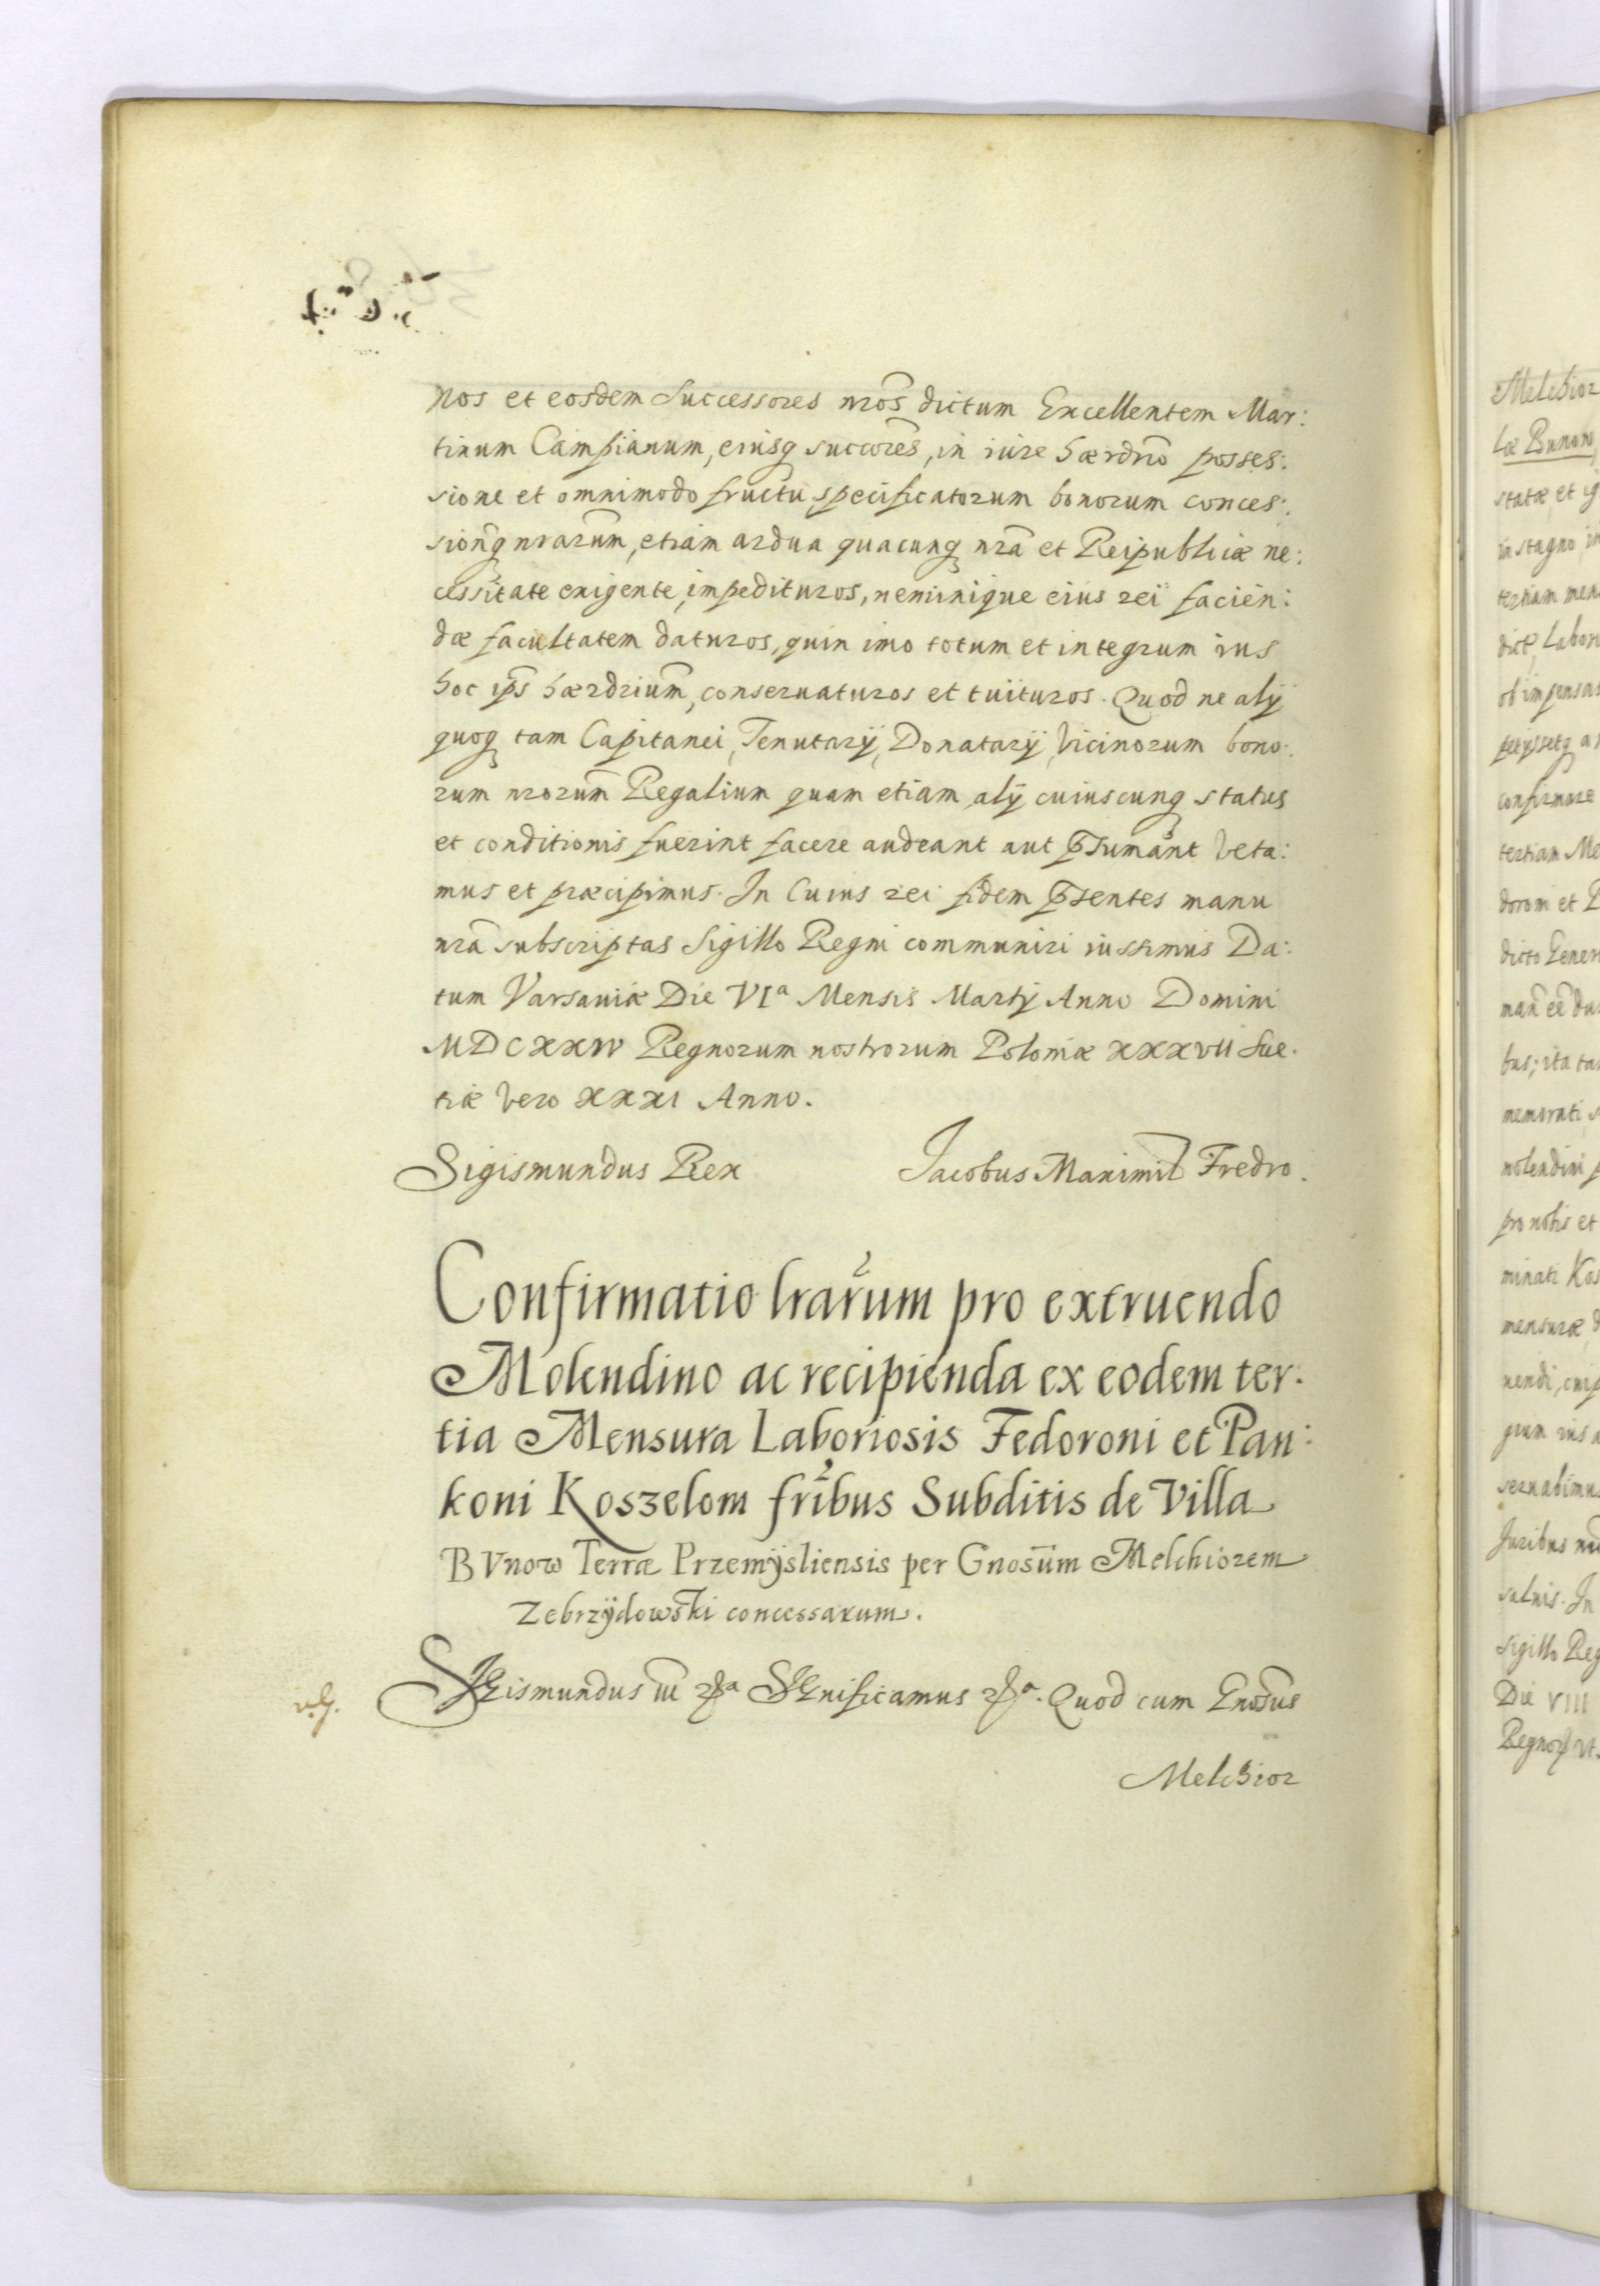 nos et eosdem Successores nrōs dictum Excellentem Mar:
tinum Campianum, eiusq succōres, in iure hærdrīo posses:
sione et omnimodo fructu specificatorum bonorum conces:
sionq̄ nrarūm, etiam ardua quacunq nrā et Reipublicæ ne:
cessitate exigente, impedituros, neminique eius rei facien:
dæ facultatem daturos, quin imo totum et integrum ius
hoc ip̄s hærdriūm, conseruaturos et tuituros. Quod ne alÿ
quoq tam Capitanei, Tenutarÿ, Donatarÿ, Vicinorum bono:
rum nrorūm Regalium quam etiam alÿ cuiuscunq status
et conditionis fuerint facere audeant aut p̄sumant Veta:
mus et præcipimus. In Cuius rei fidem p̄sentes manu
nrā subscriptas Sigillo Regni communiri iussimus Da:
tum Varsauiæ Die VIa Mensis Martÿ Anno Domini
MDCXXIV Regnorum nostrorum Poloniæ XXXVII Sue:
tiæ Vero XXXI Anno.
Sigismundus Rex Jacobus Maximil Fredro.
Confirmatio lrarum pro extruendo
Molendino ac recipienda ex eodem ter:
tia Mensura Laboriosis Fedoroni et Pan:
koni Koszelom fribus Subditis de Villa
BVnow Terræ Przemÿsliensis per Gnosūm Melchiorem
Zebrzÿdowski concessarum.
SIGismundus III Significamus Quod cum Gnosūs
Melchior
Melchior
læ Bunow
statæ et ig
in stagno in
tertiam men
dict Labor
ob impensas
petyssetq
confirmare
tertiam Me
doroni et P
dicto Gener
bus; ita ta
memorati
molendini p
pro nobis et
minati Kos
mensuræ d
nendi, cui
grum ius
seruabimus
Juribus
saluis. In
Sigillo Reg
Die VIII